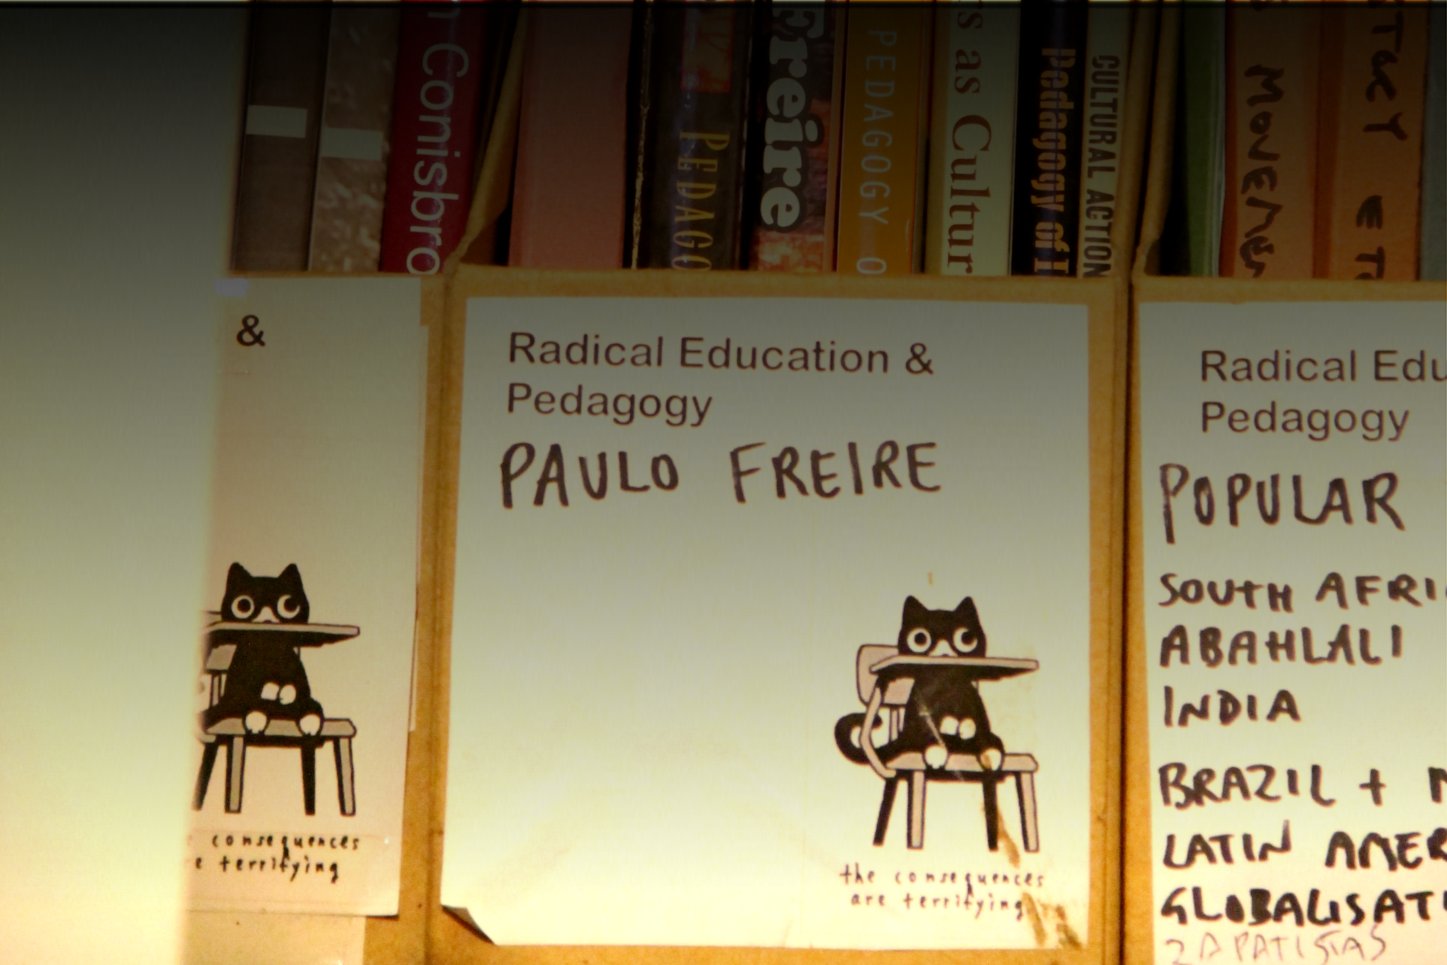 Conisbro
PEDAGO
Freire
PEDAGOGY O
as Cultur
Pedagogy of
CULTURAL ACTION
MOVEMEN
&
consequences
terrifying
Radical Education &
Pedagogy
PAULO FREIRE
the consequences
are terrifying
Radical Edu
Pedagogy
POPULAR
SOUTH AFRI
ABAHLALI
INDIA
BRAZIL +
LATIN AMER
GLOBALISATI
ZAPATISTAS